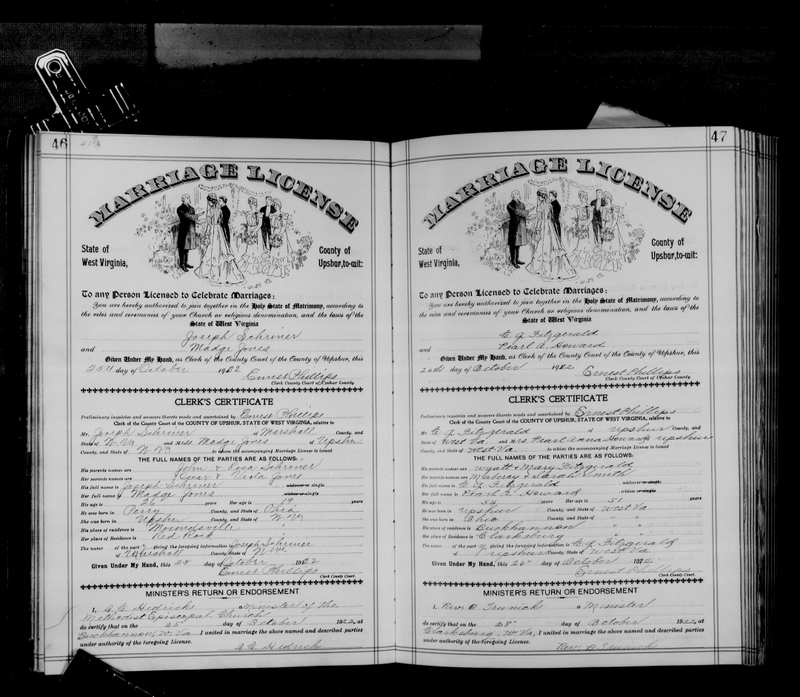 46
MARRIAGE LICENSE
State of
West Virginia,
County of
Upshur, to-wit:
To any Person Licensed to Celebrate Marriages:
You are hereby authorized to join together in the Holy State of Matrimony, according to
the rites and ceremonies of your Church or religious denomination, and the laws of the
State of West Virginia
Joseph Schriner
and Madge Jones
Given Under My Hand, as Clerk of the County Court of the County of Upshur, this
25th day of October 1922
Ernest Phillips
Clerk County Court of Upshur County
CLERK'S CERTIFICATE
Preliminary inquiries and answers thereto made and ascertained by Ernest Phillips
Clerk of the County Court of the COUNTY OF UPSHUR, STATE OF WEST VIRGINIA, relative to
Mr. Joseph Schriner of Marshall County, and
State of W. Va and Miss Madge Jones of Upshur
County, and State of W. Va to whom the accompanying Marriage License is issued
THE FULL NAMES OF THE PARTIES ARE AS FOLLOWS:
His parents names are John & Schriner
Her parents names are Jones
His full name is Joseph Schriner widower or single
Her full name is Madge Jones widow or single
His age is years Her age is 19 years
He was born in Perry County, and State of Ohio
She was born in Upshur County, and State of W. Va
His place of residence is Moundsville "
Her place of Residence is Red Rock "
The name of the party giving the foregoing information is Joseph Schriner
of Marshall County, State of W. Va.
Given Under My Hand, this 25 day of October 1922
Ernest Phillips
Clerk County Court.
MINISTER'S RETURN OR ENDORSEMENT
I, Hedrick a Minister of the
Methodist Episcopal Church
do certify that on the 25" day of October 1922, at
Buckhannon, W. Va I united in marriage the above named and described parties
under authority of the foregoing License.
Hedrick
47
MARRIAGE LICENSE
State of
West Virginia,
County of
Upshur, to-wit:
To any Person Licensed to Celebrate Marriages:
You are hereby authorized to join together in the Holy State of Matrimony, according to
the rites and ceremonies of your Church or religious denomination, and the laws of the
State of West Virginia
Fitzgerald
and Pearl A. Howard
Given Under My Hand, as Clerk of the County Court of the County of Upshur, this
26th day of October 1922
Ernest Phillips
Clerk County Court of Upshur County
CLERK'S CERTIFICATE
Preliminary inquiries and answers thereto made and ascertained by Ernest Phillips
Clerk of the County Court of the COUNTY OF UPSHUR, STATE OF WEST VIRGINIA, relative to
Mr. Fitzgerald of Upshur County, and
State of West Va and Mrs. Pearl Anna Howard of Upshur
County, and State of West Va to whom the accompanying Marriage License is issued
THE FULL NAMES OF THE PARTIES ARE AS FOLLOWS:
His parents names are Wyatt & Mary Fitzgerald
Her parents names are & Sarah Smith
His full name is Fitzgerald widower or single
Her full name is Pearl Howard widow or single
His age is years Her age is years
He was born in Upshur County, and State of West Va
She was born in Ohio County, and State of
His place of residence is Buckhannon "
Her place of Residence is Clarksburg "
The name of the party giving the foregoing information is Fitzgerald
of Upshur County, State of West Va
Given Under My Hand, this 26" day of October 1922
Ernest Phillips
Clerk County Court.
MINISTER'S RETURN OR ENDORSEMENT
I, Rev. a Minister
do certify that on the 28" day of October 1922, at
Clarksburg, W. Va, I united in marriage the above named and described parties
under authority of the foregoing License.
Rev.